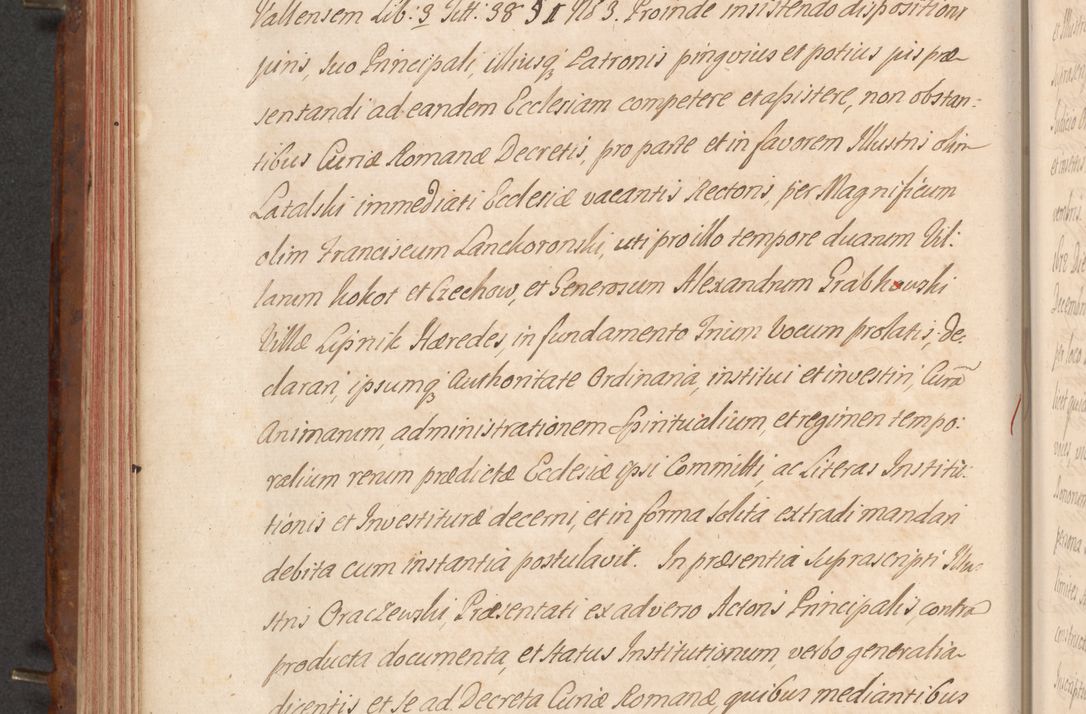 Vallensem Lib: 3 Titt: 38 § 1 No 3. Proinde insistendo dispositioni
juris, suo Principali, illiusq3 Patronis pingvius et potius jus præ-
sentandi ad eandem Ecclesiam competere et assistere, non obstan:
tibus Curiæ Romanæ Decretis, pro parte et in favorem Illustris olim
Latalski immediati Ecclesiæ vacantis Rectoris, per Magnificum
olim Franciscum Lanckoronski, uti pro illo tempore duarum Vil:
larum Kokot et Czechow, et Generosum Alexandrum Grabkowski
Villæ Lipnik Hæredes, in fundamento Trium Vocum prolatis, de:
clarari, ipsumq3 Authoritate Ordinaria, institui et investiri, Curã
Animarum, administrationem Spiritualium, et regimen tempo:
ralium rerum prædictæ Ecclesiæ ipsi Committi, ac Literas Institu:
tionis et Investituræ decerni, et in forma solita extradi mandari
debita cum instantia postulavit. In præsentia suprascripti Illu-
stris Oraczewski, Præsentati ex adverso Actoris Principalis, contra
producta documenta, et status Institutionum, verbo generalia
dicentis et se ad Decreta Curiæ Romanæ, quibus mediantibus